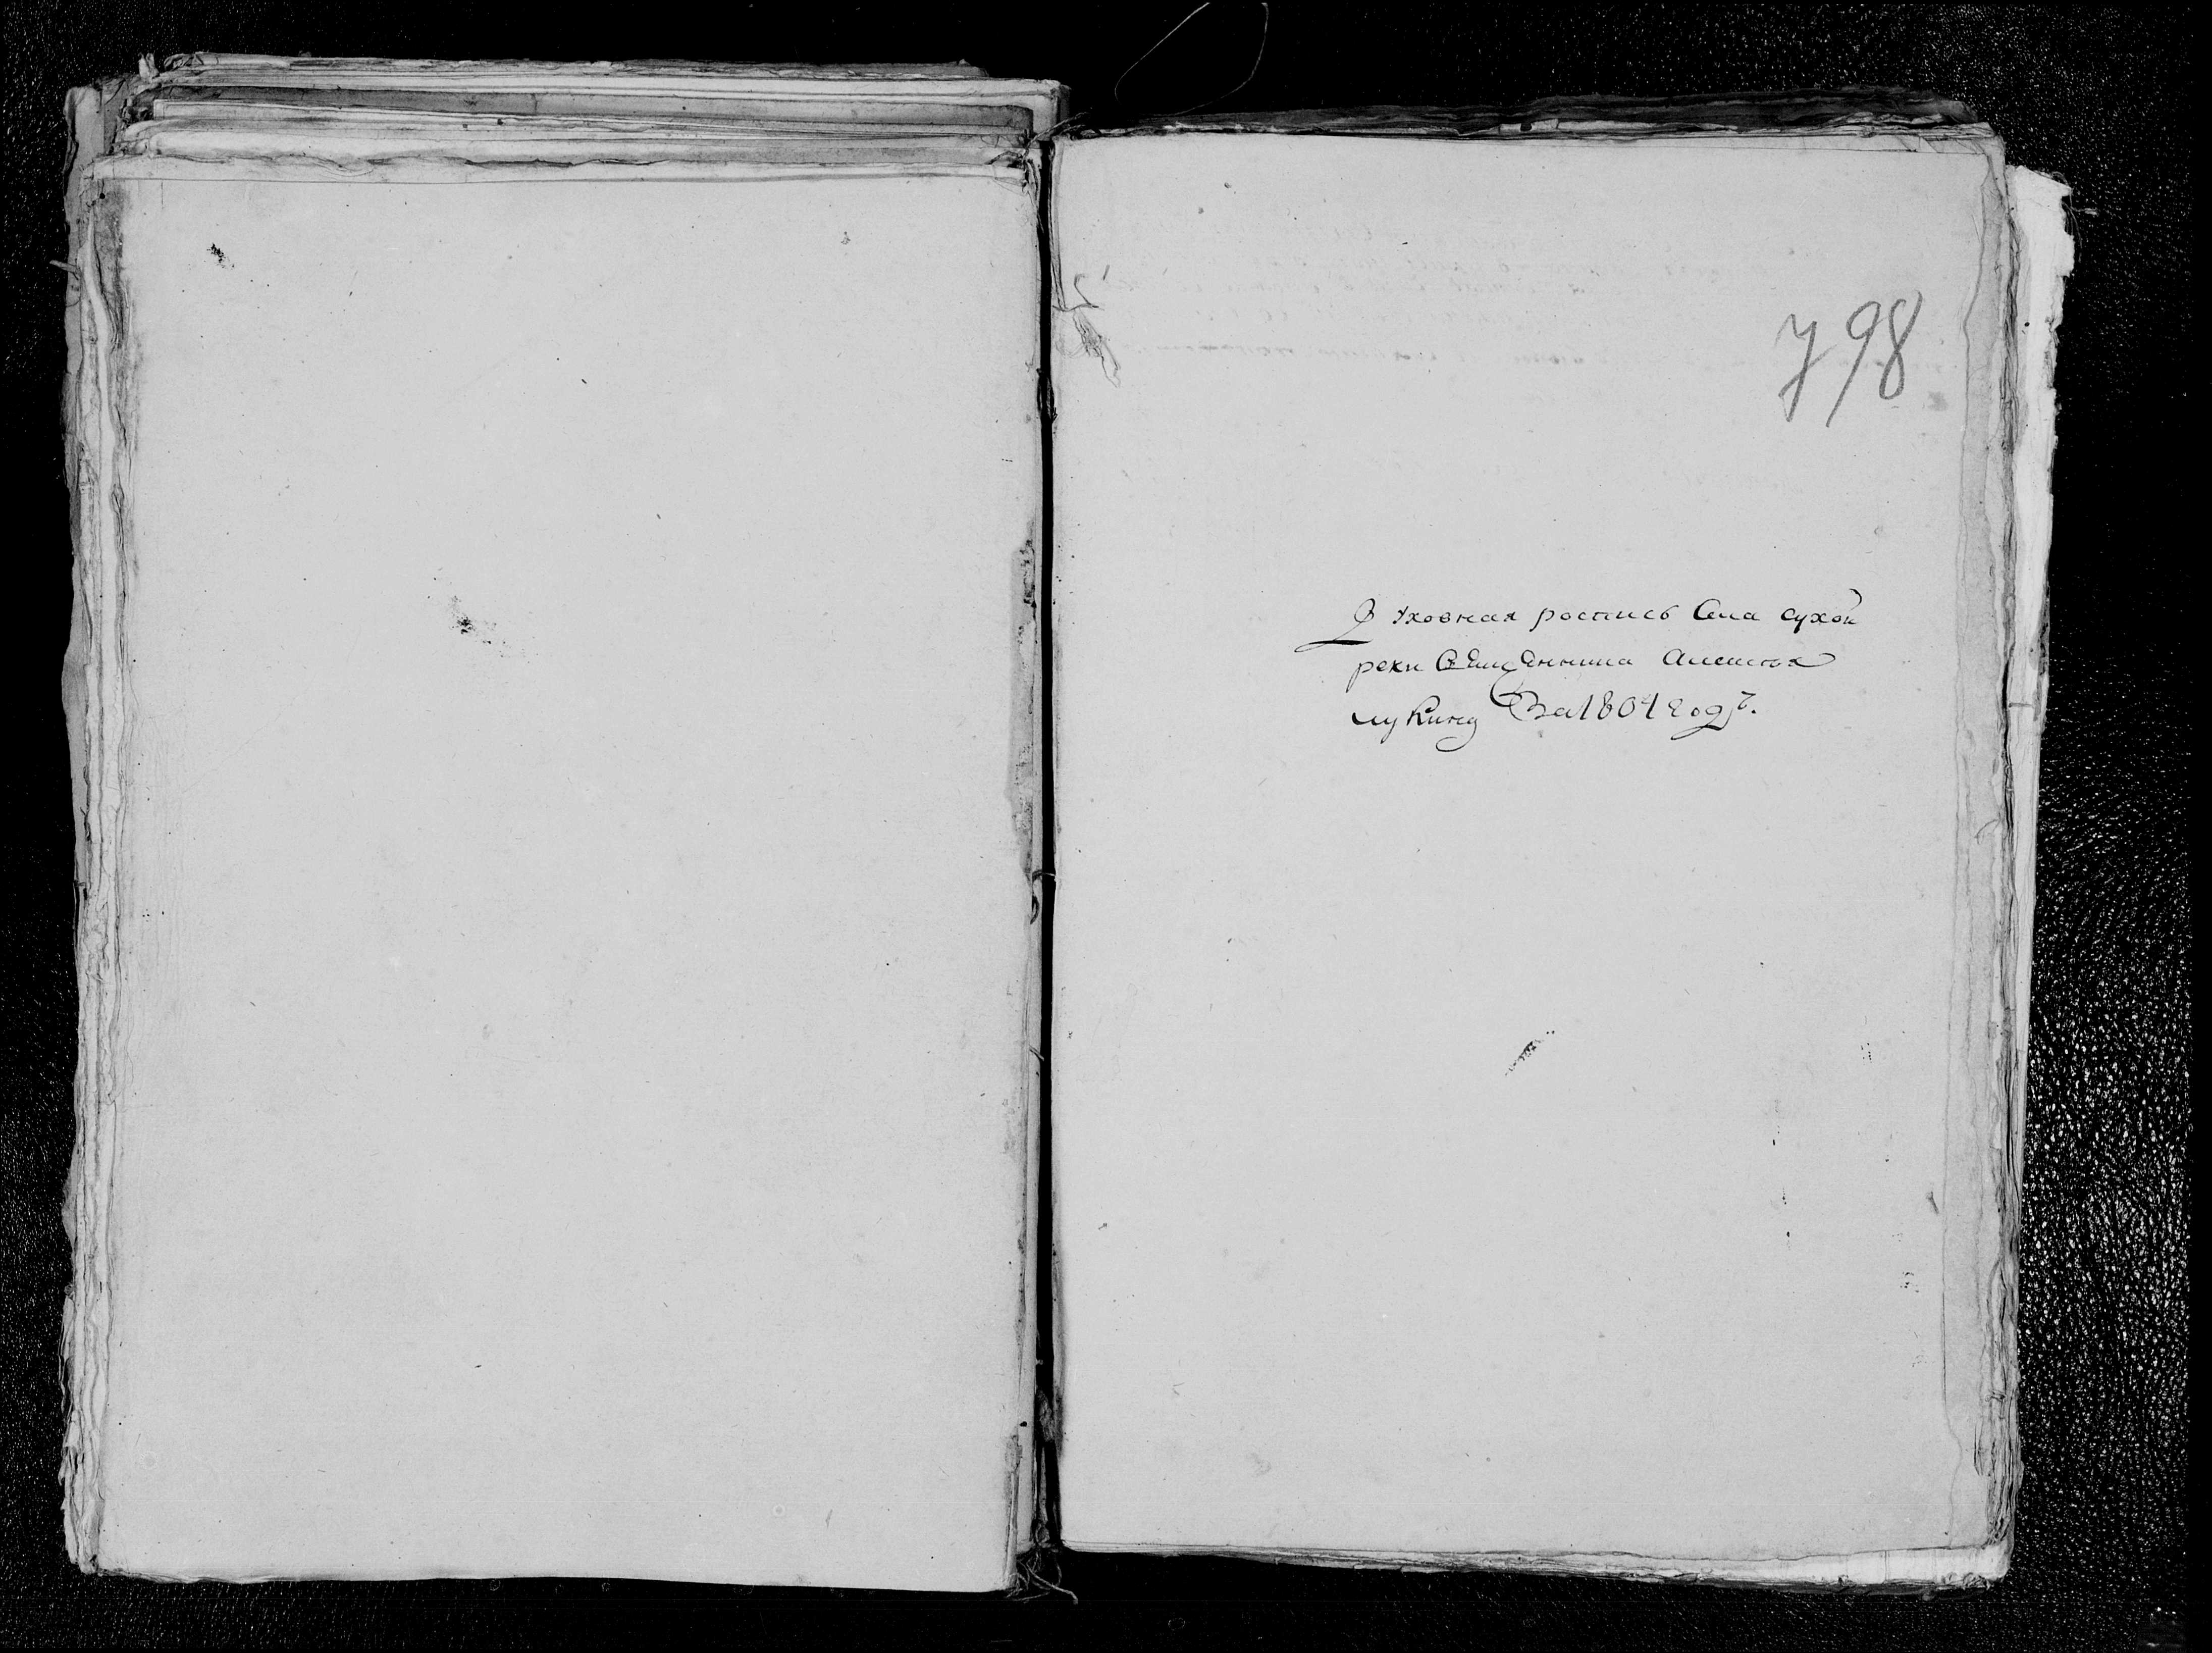 798
Духовная роспись Села сухой
реки Священника Алексея
лукина За 1804 годъ.